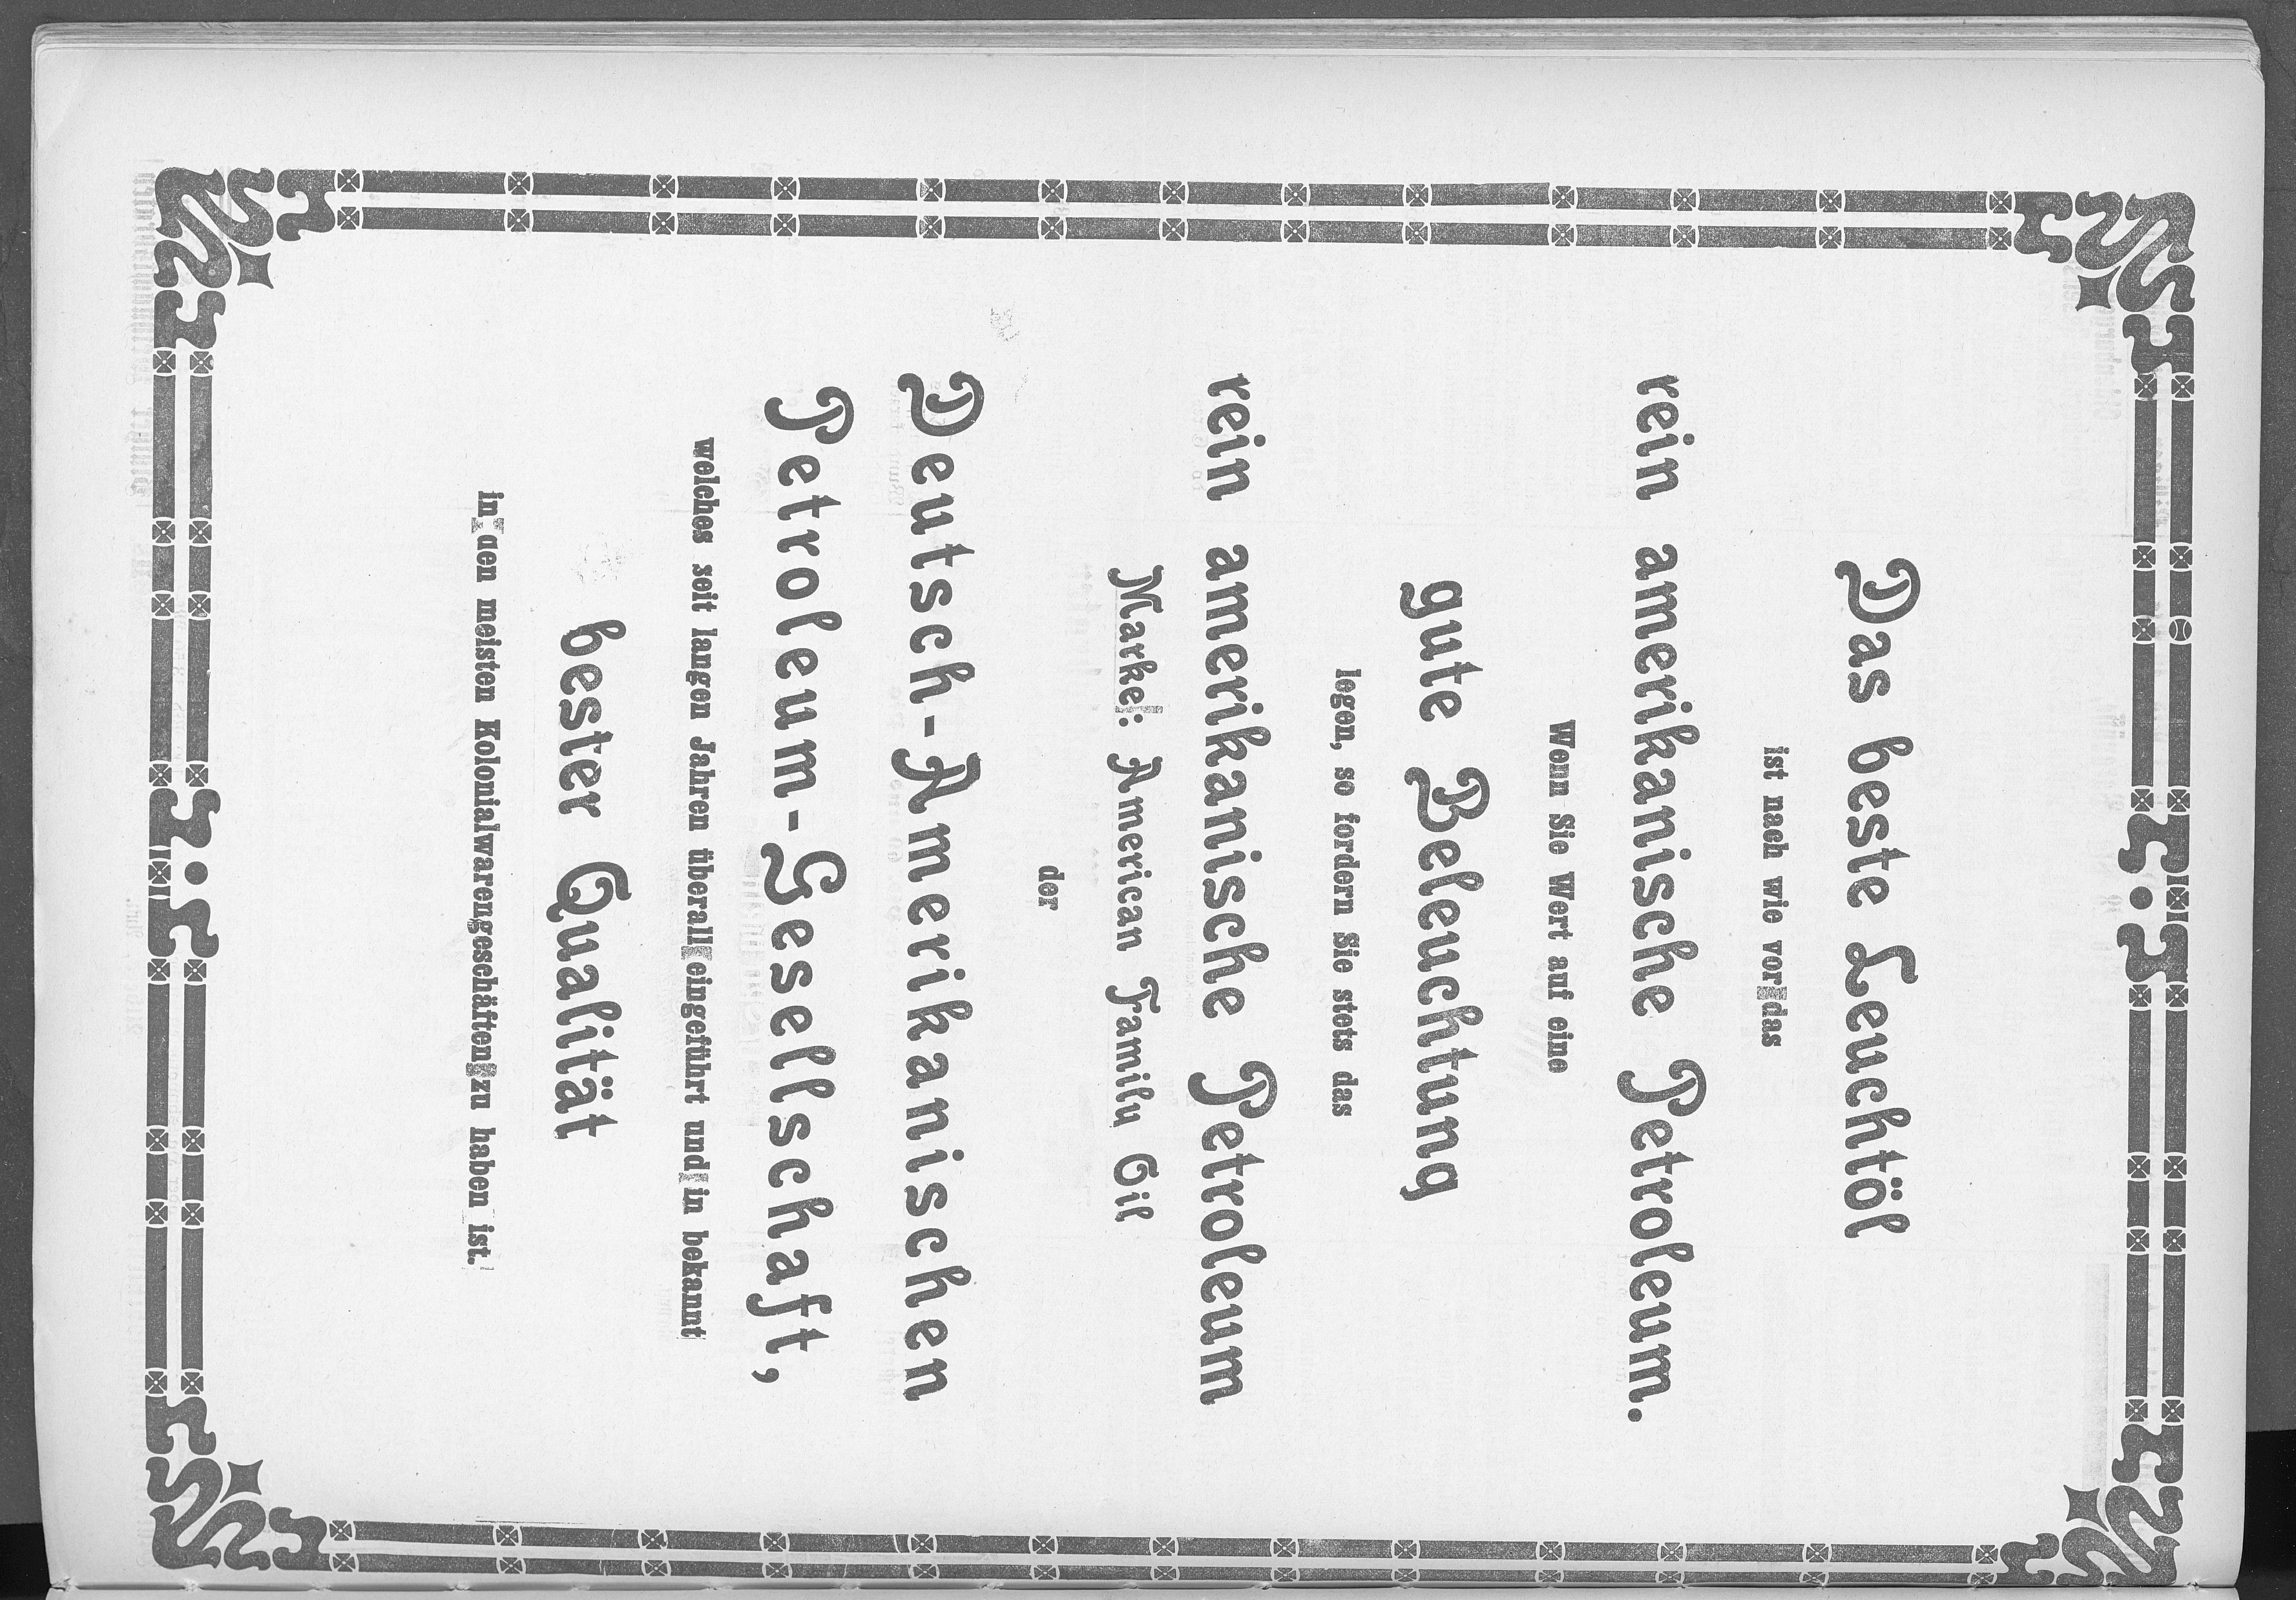 Das beste Leuchtöl
ist nach wie vor das
rein amerikanische Petroleum.
Wenn Sie Wert auf eine
gute Beleuchtung
legen, so fordern Sie stets das
rein amerikanische Petroleum
Marke: American Family Oil
der
Deutsch-Amerikanischen
Petroleum-Gesellschaft,
welches seit langen Jahren überall eingeführt und in bekannt
bester Qualität
in den meisten Kolonialwarengeschäften zu haben ist.